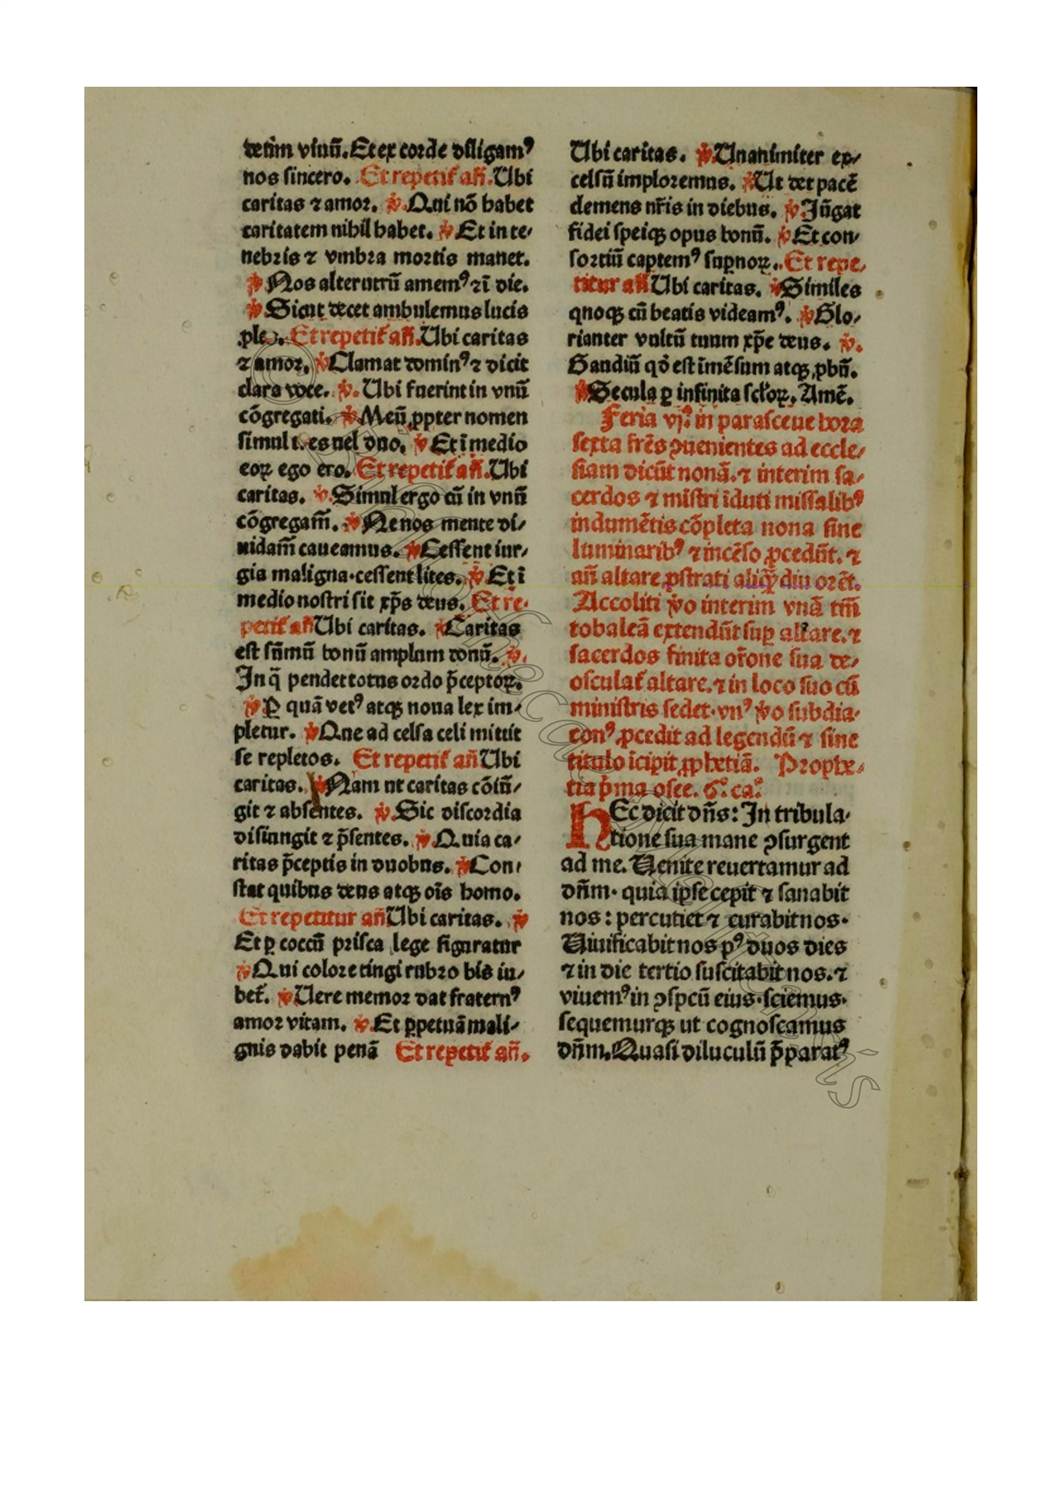 deum viuū. Et ex corde diligamꝰ
nos sincero. Et repetit᷑ añ. Ubi
caritas ⁊ amor. ℣. Qui nō habet
caritatem nihil habet. ℣ Et in te⸗
nebris ⁊ vmbra mortis manet.
℣ Nos alterutrū amemꝰ ⁊ ī die.
℣ Sicut decet ambulemus lucis
Et repetit᷑ añ. Ubi caritas
⁊ amor. ℣ Clamat dominꝰ ⁊ dicit
clara voce. ℣. Ubi fuerint in vnū
cōgregati. ℣ Meū ꝓpter nomen
simul uel duo. ℣ Et ī medio
eoꝝ ego ero. Et repetit᷑ añ. Ubi
caritas. ℣ Simul ergo cū in vnū
cōgregam̄. ℣ Ne nos mente di⸗
uidam̄ caueamus. ℣ Cessent iur⸗
gia maligna·cessent lites. ℣ Et ī
medio nostri sit xp̄s deus. Et re⸗
petit᷑ añ Ubi caritas. ℣ Caritas
est sūmū bonū amplum donū. ℣.
In q̄ pendet totus ordo p̄ceptoꝝ.
℣ Ꝑ quā vetꝰ atqꝫ noua lex im⸗
pletur. ℣ Que ad celsa celi mittit
se repletos. Et repetit᷑ añ Ubi
caritas. ℣ Nam ut caritas cōiū⸗
git ⁊ absentes. ℣ Sic discordia
disiungit ⁊ p̄sentes. ℣ Quia ca⸗
ritas p̄ceptis in duobus. ℣ Con⸗
stat quibus deus atqꝫ oīs homo.
Et repetitur añ Ubi caritas. ℣
Et ꝑ coccū prisca lege figuratur
℣ Qui colore tingi rubro bis iu⸗
bet᷑. ℣ Uere memor dat fraternꝰ
amor vitam. ℣. Et ꝑpetuā mali⸗
gnis dabit penā Et repetit᷑ añ.
Ubi caritas. ℣ Unanimiter ex⸗
celsū imploremus. ℣ Ut det pacē
clemens nr̄is in diebus. ℣ Jūgat
fidei speiqꝫ opus bonū. ℣ Et con⸗
sortiū captemꝰ sup̱noꝝ. Et repe⸗
titur añ Ubi caritas. ℣ Similes
quoqꝫ cū beatis videamꝰ. ℣ Glo⸗
rianter vultū tuum xp̄e deus. ℣.
Gaudiū qđ est īmēsum atqꝫ ꝓbū.
℣ Secula ꝑ infinita scl̄oꝝ. Amē.
Feria vj. in parasceue hora
sexta fr̄es ꝯuenientes ad eccle⸗
siam dicūt nonā. ⁊ interim sa⸗
cerdos ⁊ mīstri īduti missalibꝰ
indumētis cōpleta nona sine
luminaribꝰ ⁊ incēso ꝓcedūt. ⁊
añ altare ꝓstrati aliqꝫ diu orēt.
Accoliti v̊o interim vnā tm̄
tobaleā extendūt sup̱ altare. ⁊
sacerdos finita or̄one sua de⸗
osculat᷑ altare. ⁊ in loco suo cū
ministris sedet·vnꝰ v̊o subdia⸗
conꝰ ꝓcedit ad legendū ⁊ sine
titulo īcipit ꝓphetiā. Prophe⸗
tia p̄ma osee. 6. ca.
hEc dicit dn̄s: In tribula⸗
tione sua mane ꝯsurgent
ad me. Uenite reuertamur ad
dn̄m· quia ipse cepit ⁊ sanabit
nos: percutiet ⁊ curabit nos·
Uiuificabit nos pꝰ duos dies
⁊ in die tertio suscitabit nos. ⁊
viuemꝰ in ꝯspcū eius·sciemus·
sequemurqꝫ ut cognoscamus
dn̄m. Quasi diluculū p̄paratꝰ